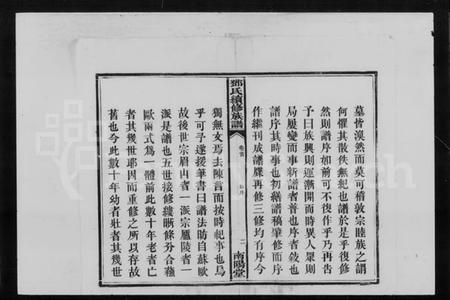 墓皆漠然而莫可稽敦宗睦族之謂
何懼其散佚無紀也譜於是乎復修
然則譜序如前可不復作乎乃再告
予曰族興則運漸開而時異人眾則
局屢變而事新譜者普也序者敘也
譜序其時事也初繕譜稿肇修而序
作繼刊成譜牒再修三修均有序今
鄧氏續修族譜
卷首
二
南陽堂
獨無文焉去陳言而按時紀事也烏
乎可予遂援筆書曰譜法助自蘇歐
故後世宗眉山者一派宗廬陵者一
派是譜也五世接修縷晰條分合蘇
歐兩式為一體前此數十年老者亡
者其幾世耶因而重修之所以存故
舊也今此數十年幼者壯者其幾世